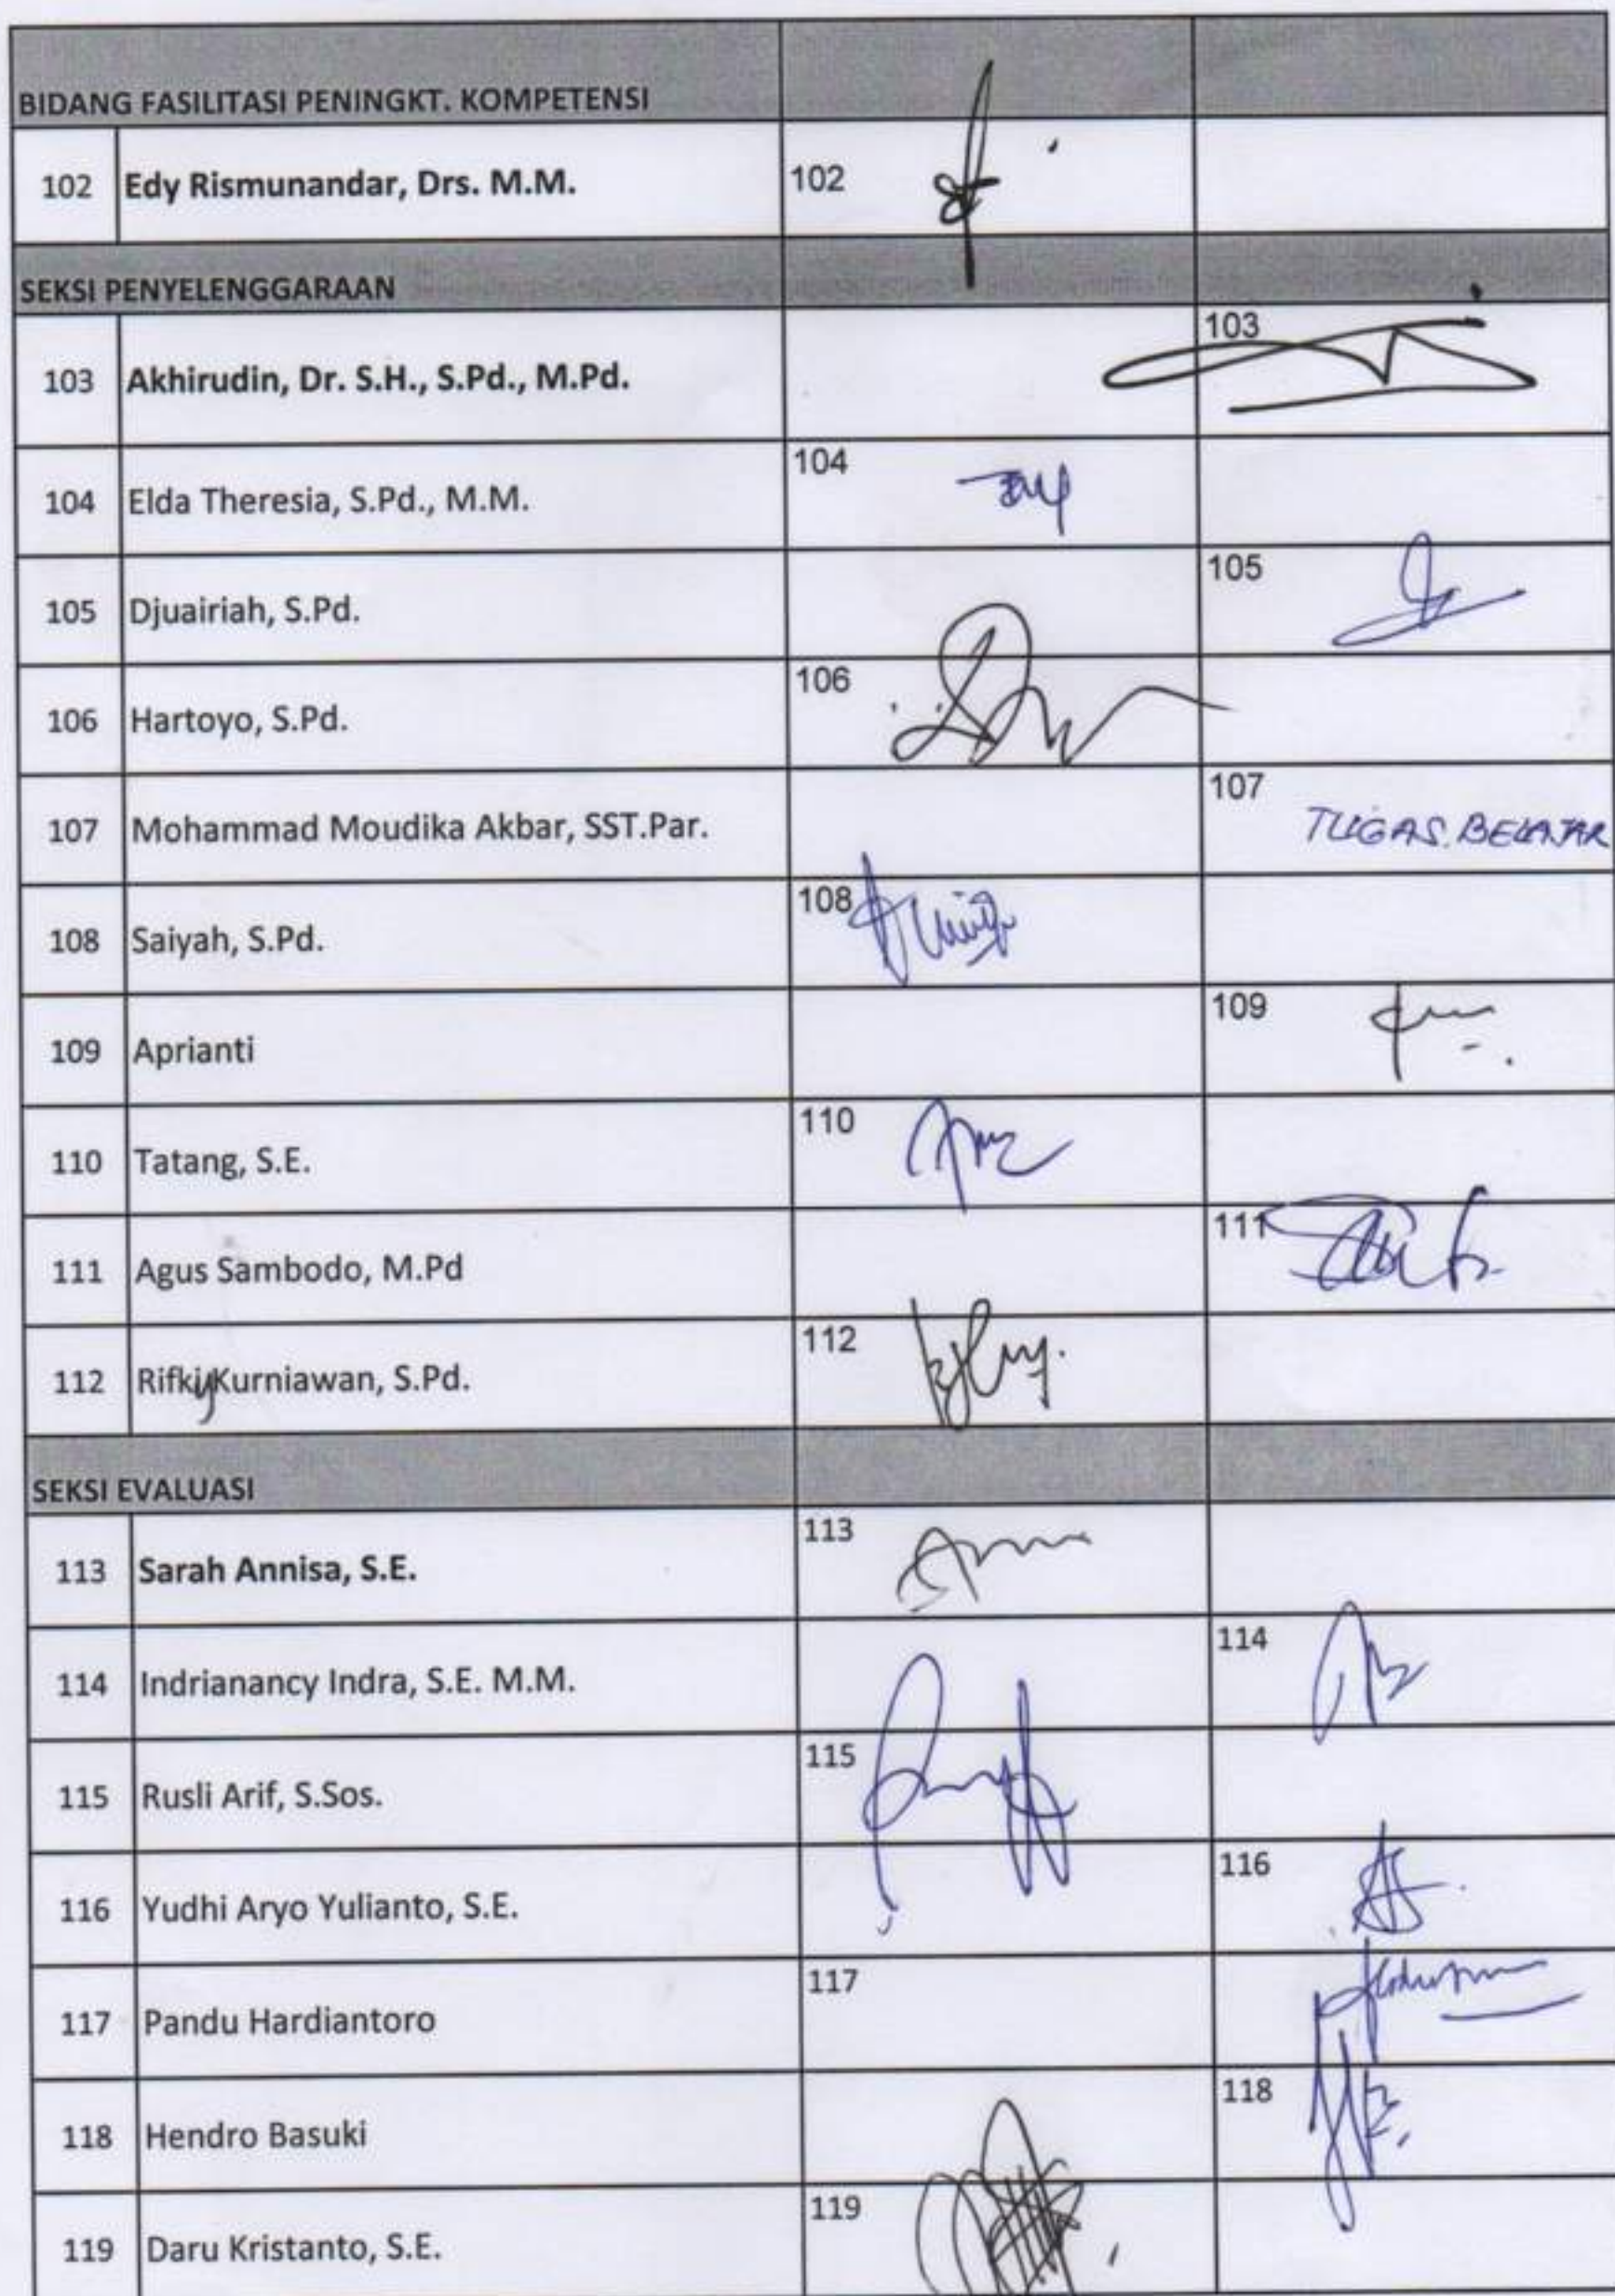 BIDANG FASILITASI PENINGKT. KOMPETENSI
102 Edy Rismunandar, Drs. M.M. 102
SEKSI PENYELENGGARAAN
103 Akhirudin, Dr. S.H., S.Pd., M.Pd. 103
104 Elda Theresia, S.Pd., M.M. 104
105 Djuairiah, S.Pd. 105
106 Hartoyo, S.Pd. 106
107 Mohammad Moudika Akbar, SST.Par. 107 TUGAS BELAJAR
108 Saiyah, S.Pd. 108
109 Aprianti 109
110 Tatang, S.E. 110
111 Agus Sambodo, M.Pd 111
112 Rifkiy Kurniawan, S.Pd. 112
SEKSI EVALUASI
113 Sarah Annisa, S.E. 113
114 Indrianancy Indra, S.E. M.M. 114
115 Rusli Arif, S.Sos. 115
116 Yudhi Aryo Yulianto, S.E. 116
117 Pandu Hardiantoro 117
118 Hendro Basuki 118
119 Daru Kristanto, S.E. 119